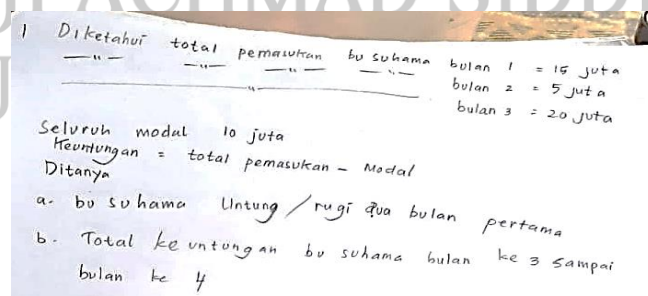 1 Diketahui total pemasukan bu suhama bulan 1 = 15 juta
— " — — " — — " — — " — bulan 2 = 5 juta
— " — bulan 3 = 20 juta
Seluruh modal 10 juta
Keuntungan = total pemasukan - Modal
Ditanya
a. bu suhama Untung / rugi dua bulan pertama
b. Total keuntungan bu suhama bulan ke 3 sampai
bulan ke 4